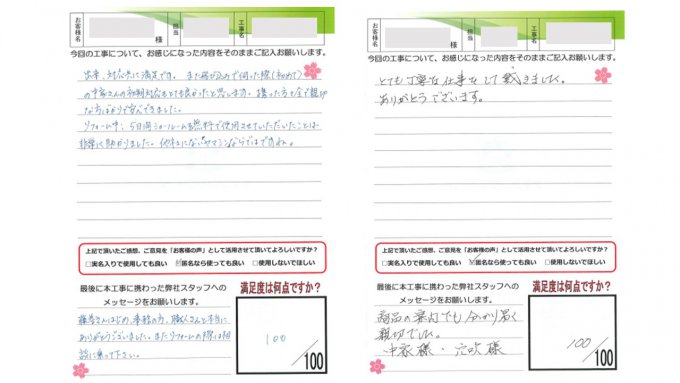 お客様名
様
担当
工事名
今回の工事について、お感じになった内容をそのままご記入お願いします。
出来、対応共に満足です。また飛び込みで伺った際(初めて)
の中家さんの初期対応もとても良かったと思います。携った方も全て親切
な方ばかりで安心できました。
リフォーム中、5日間ショールームを無料で使用させていただいたことは
非常に助かりました。他社にないヤマシンならではですね。
上記で頂いたご感想、ご意見を「お客様の声」として活用させて頂いてよろしいですか?
□実名入りで使用しても良い ☑匿名なら使っても良い □使用しないでほしい
最後に本工事に携わった弊社スタッフへの
メッセージをお願いします。
さんはじめ、事務の方、職人さんと本当に
ありがとうございました。またリフォームの際は相
談に乗って下さい。
満足度は何点ですか?
100
/100
お客様名
様
担当
工事名
今回の工事について、お感じになった内容をそのままご記入お願いします。
とても丁寧な仕事をして戴きました。
ありがとうございます。
上記で頂いたご感想、ご意見を「お客様の声」として活用させて頂いてよろしいですか?
□実名入りで使用しても良い ☑匿名なら使っても良い □使用しないでほしい
最後に本工事に携わった弊社スタッフへの
メッセージをお願いします。
商品の案内でも分かり易く
親切でした。
中家様・穴吹様
満足度は何点ですか?
100
/100